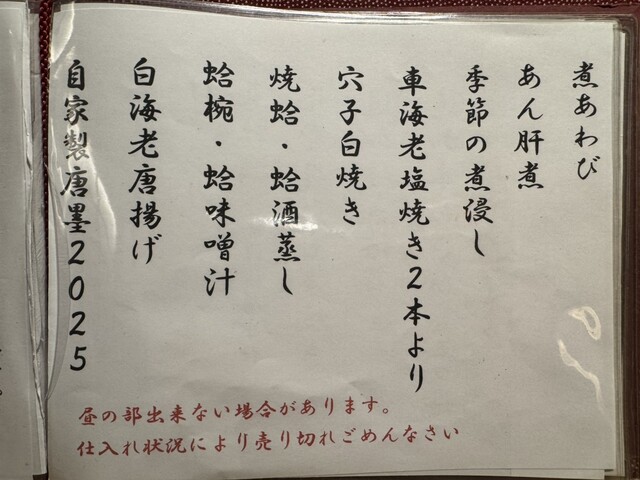 煮あわび
あん肝煮
季節の煮浸し
車海老塩焼き2本より
穴子白焼き
焼蛤・蛤酒蒸し
蛤椀・蛤味噌汁
白海老唐揚げ
自家製唐墨2025
昼の部出来ない場合があります。
仕入れ状況により売り切れごめんなさい